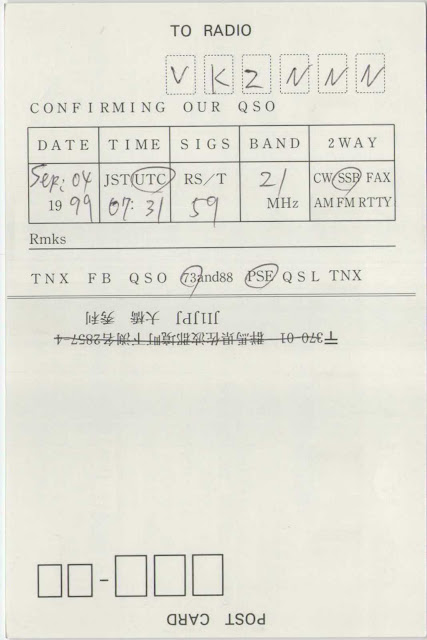 TO RADIO
V K 2 N N N
CONFIRMING OUR QSO
DATE TIME SIGS BAND 2WAY
Sep; 04 JST UTC RS/T 21 CW SSB FAX
1999 07:31 59 MHz AM FM RTTY
Rmks
TNX FB QSO 73and88 PSE QSL TNX
〒370-01 群馬県佐波郡境町下渕名2857-4
JI1JPJ 大橋 秀利
POST CARD